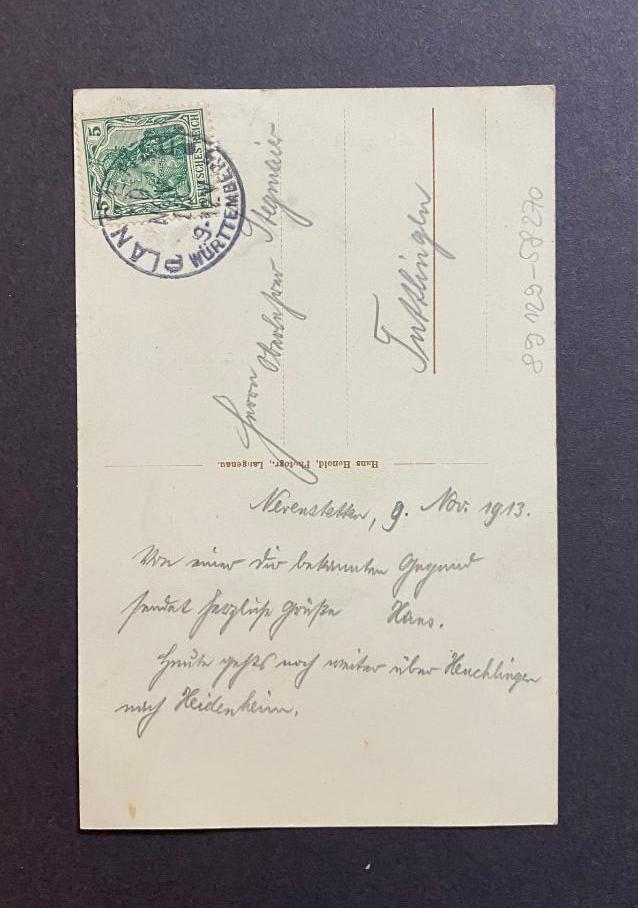 5 5
DEUTSCHES REICH
WÜRTTEMBERG
Herrn Oberlehrer Stegmaier
Tuttlingen
89 129-58270
Hans Honold, Photogr., Langenau.
Nerenstetten, 9. Nov. 1913.
Von einer dir bekannten Gegend
sendet herzliche Grüße Hans.
Heute gehts noch weiter über Heuchlingen
nach Heidenheim.